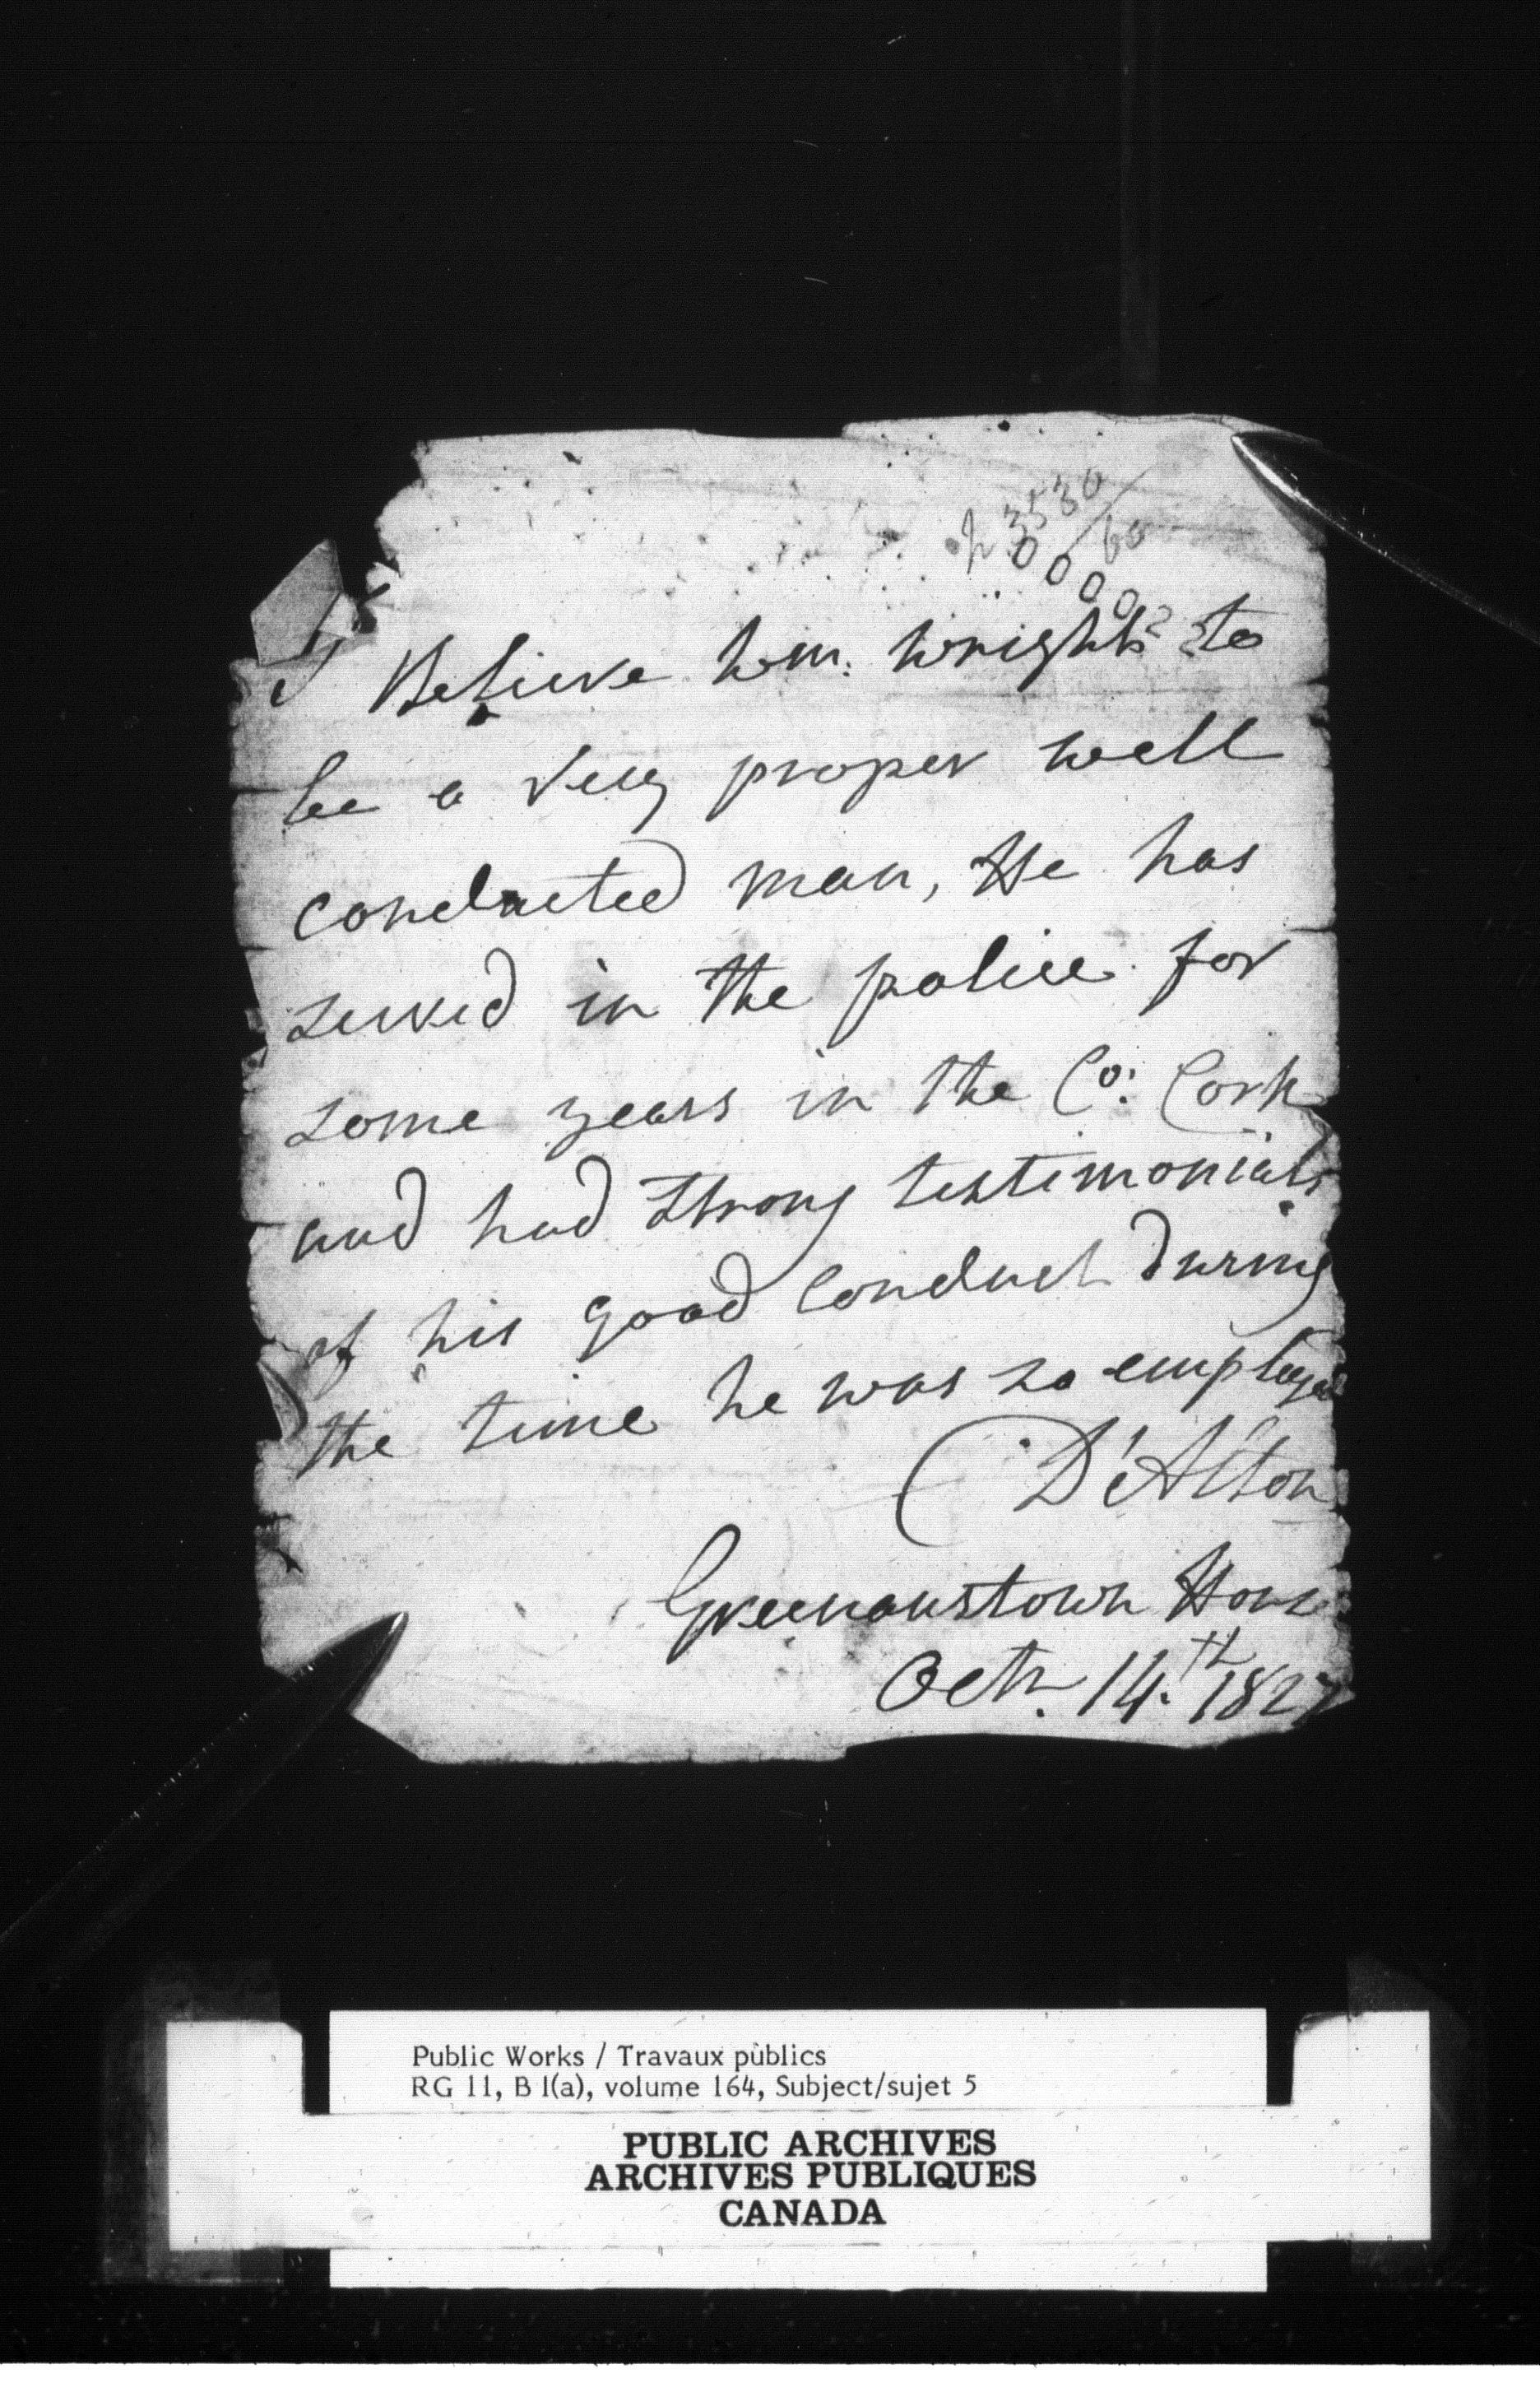 h 3530
60
0 0 0 0 2 2
I Believe Wm. Wright to
be a very proper well
conducted man, He has
served in the police for
some years in the Co: Cork
and had strong testimonials
of his good Conduct During
the time he was so employed
D'Alton
Greenanstown House
Octr. 14.th 1827
Public Works / Travaux publics
RG 11, B 1(a), volume 164, Subject/sujet 5
PUBLIC ARCHIVES
ARCHIVES PUBLIQUES
CANADA